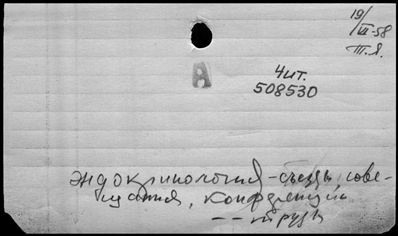 19/III-58
Т.Я.
А
Чит.
508530
эндокринология - съезды, сове-
щания, конференции
-- труды